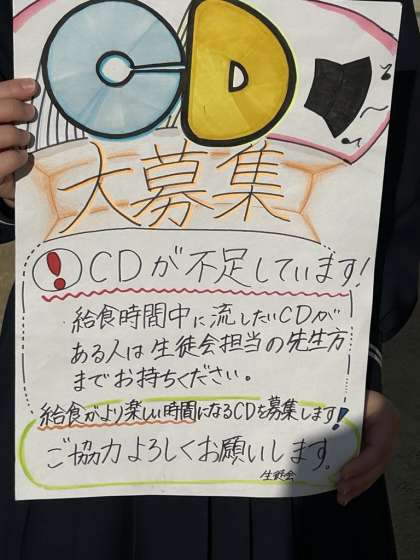 CD
大募集
！CDが不足しています!
給食時間中に流したいCDが
ある人は生徒会担当の先生方
までお持ちください。
給食がより楽しい時間になるCDを募集します!
ご協力よろしくお願いします。
生徒会